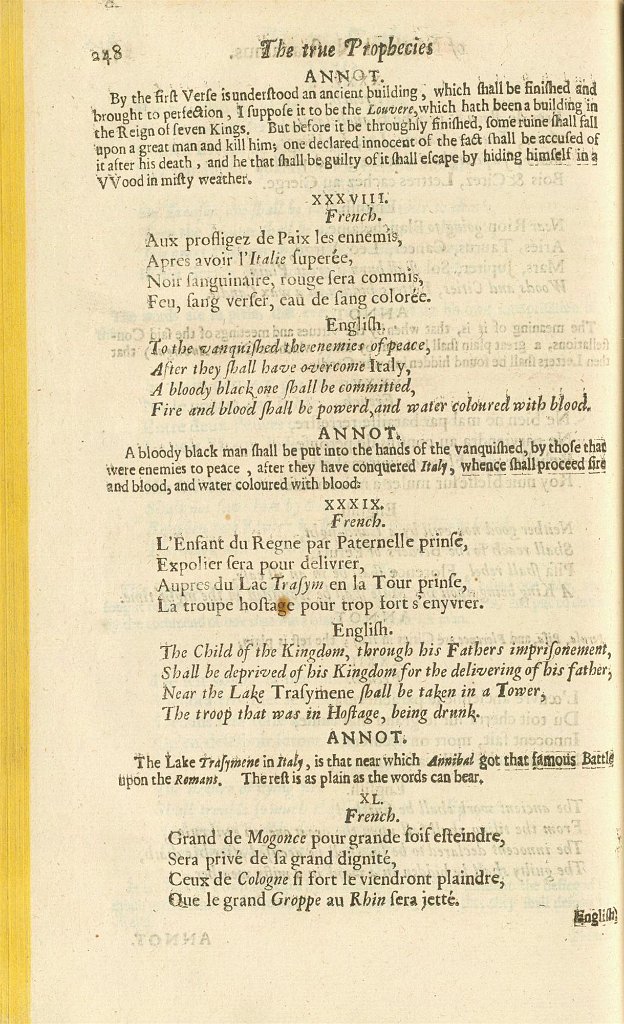 248 The true Prophecies
ANNOT.
By the first Verse is understood an ancient building, which shall be finished and
brought to perfection, I suppose it to be the Louvere, which hath been a building in
the Reign of seven Kings. But before it be throughly finished, some ruine shall fall
upon a great man and kill him; one declared innocent of the fact shall be accused of
it after his death, and he that shall be guilty of it shall escape by hiding himself in a
VVood in misty weather.
XXXVIII.
French.
Aux profligez de Paix les ennemis,
Apres avoir l'Italie superée,
Noir sanguinaire, rouge sera commis,
Feu, sang verser, eau de sang colorée.
English.
To the vanquished the enemies of peace,
After they shall have overcome Italy,
A bloody black one shall be committed,
Fire and blood shall be powerd, and water coloured with blood.
ANNOT.
A bloody black man shall be put into the hands of the vanquished, by those that
were enemies to peace, after they have conquered Italy, whence shall proceed fire
and blood, and water coloured with blood.
XXXIX.
French.
L'Enfant du Regne par Paternelle prinse,
Expolier sera pour delivrer,
Aupres du Lac Trasym en la Tour prinse,
La troupe hostage pour trop fort s'enyvrer.
English.
The Child of the Kingdom, through his Fathers imprisonement,
Shall be deprived of his Kingdom for the delivering of his father,
Near the Lake Trasymene shall be taken in a Tower,
The troop that was in Hostage, being drunk.
ANNOT.
The Lake Trasymene in Italy, is that near which Annibal got that famous Battle
upon the Romans. The rest is as plain as the words can bear.
XL.
French.
Grand de Mogonce pour grande soif esteindre,
Sera privé de sa grand dignité,
Ceux de Cologne si fort le viendront plaindre,
Que le grand Groppe au Rhin sera jetté.
English